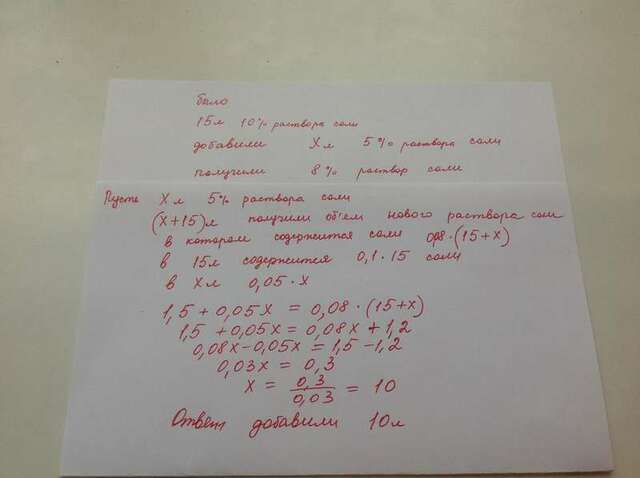 было
15л 10% раствора соли
добавили Xл 5% раствора соли
получили 8% раствор соли
Пусть Xл 5% раствора соли
(X+15)л получили объем нового раствора соли
в котором содержится соли 0,08·(15+x)
в 15л содержится 0,1·15 соли
в Xл 0,05·X
1,5+0,05X = 0,08·(15+x)
1,5+0,05X = 0,08X+1,2
0,08X-0,05X = 1,5-1,2
0,03X = 0,3
X = 0,3/0,03 = 10
Ответ добавили 10л